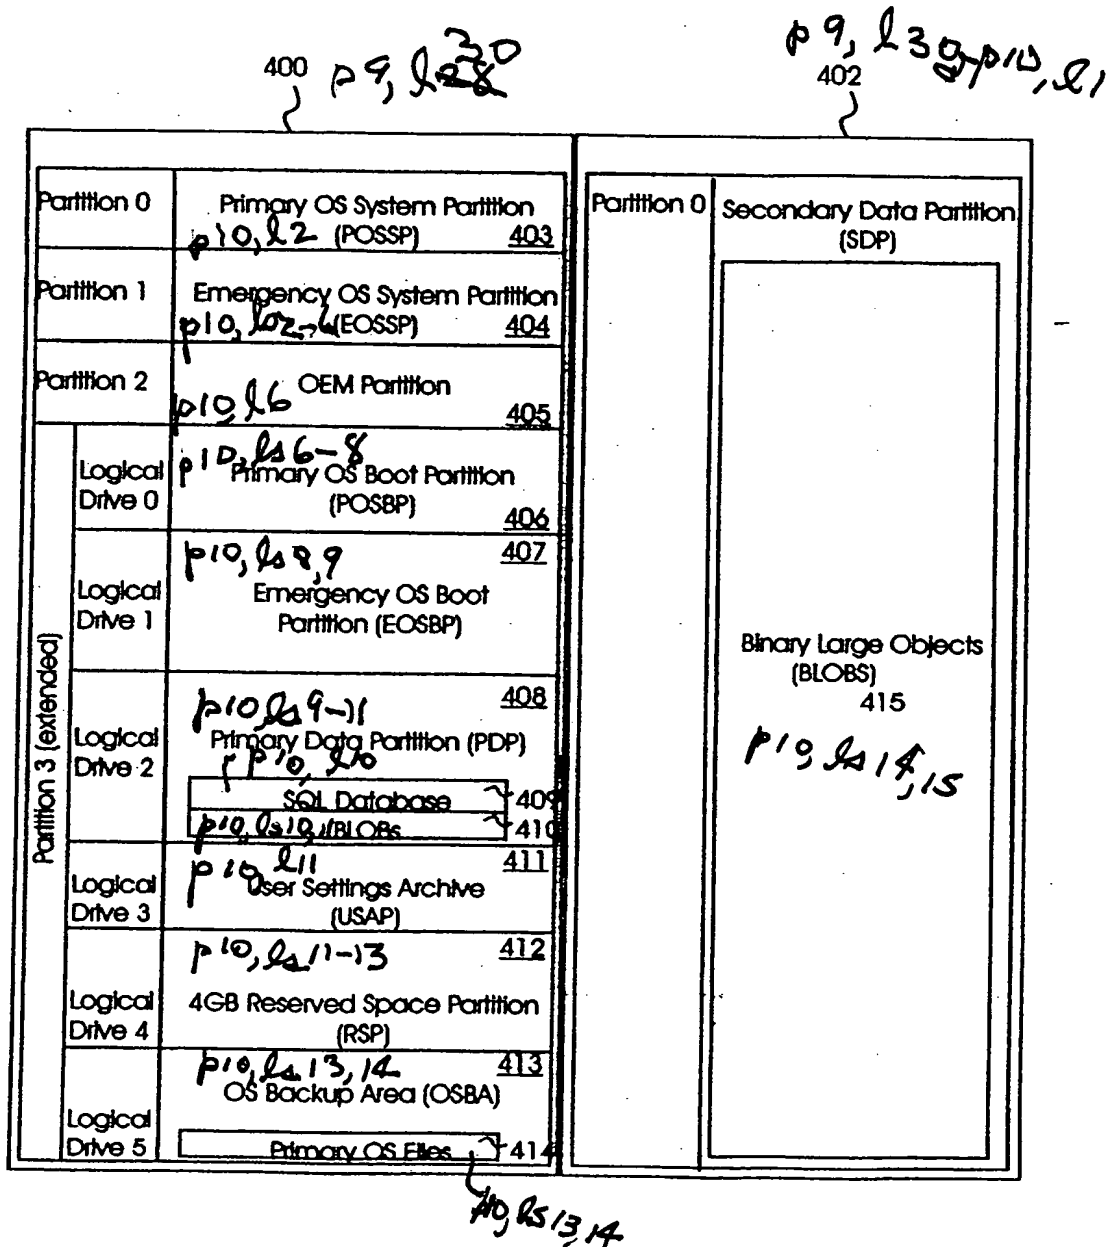 400 p 9, l 30
p 9, l 30-p10, l1
402
Partition 0
Primary OS System Partition
p10, l2 (POSSP) 403
Partition 1
Emergency OS System Partition
p10, (EOSSP) 404
Partition 2
OEM Partition
p10, l6 405
Partition 3 (extended)
Logical
Drive 0
p10, ls 6-8
Primary OS Boot Partition
(POSBP)
406
Logical
Drive 1
p10, ls 8,9 407
Emergency OS Boot
Partition (EOSBP)
Logical
Drive 2
p10, ls 9-11 408
Primary Data Partition (PDP)
p10, l10
SQL Database 409
p10, ls 10,11 BLOBs 410
Logical
Drive 3
p10, l11 411
User Settings Archive
(USAP)
Logical
Drive 4
p10, ls 11-13 412
4GB Reserved Space Partition
(RSP)
Logical
Drive 5
p10, ls 13, 14 413
OS Backup Area (OSBA)
Primary OS Files 414
p10, ls 13, 14
Partition 0
Secondary Data Partition
(SDP)
Binary Large Objects
(BLOBS)
415
p10, ls 14, 15